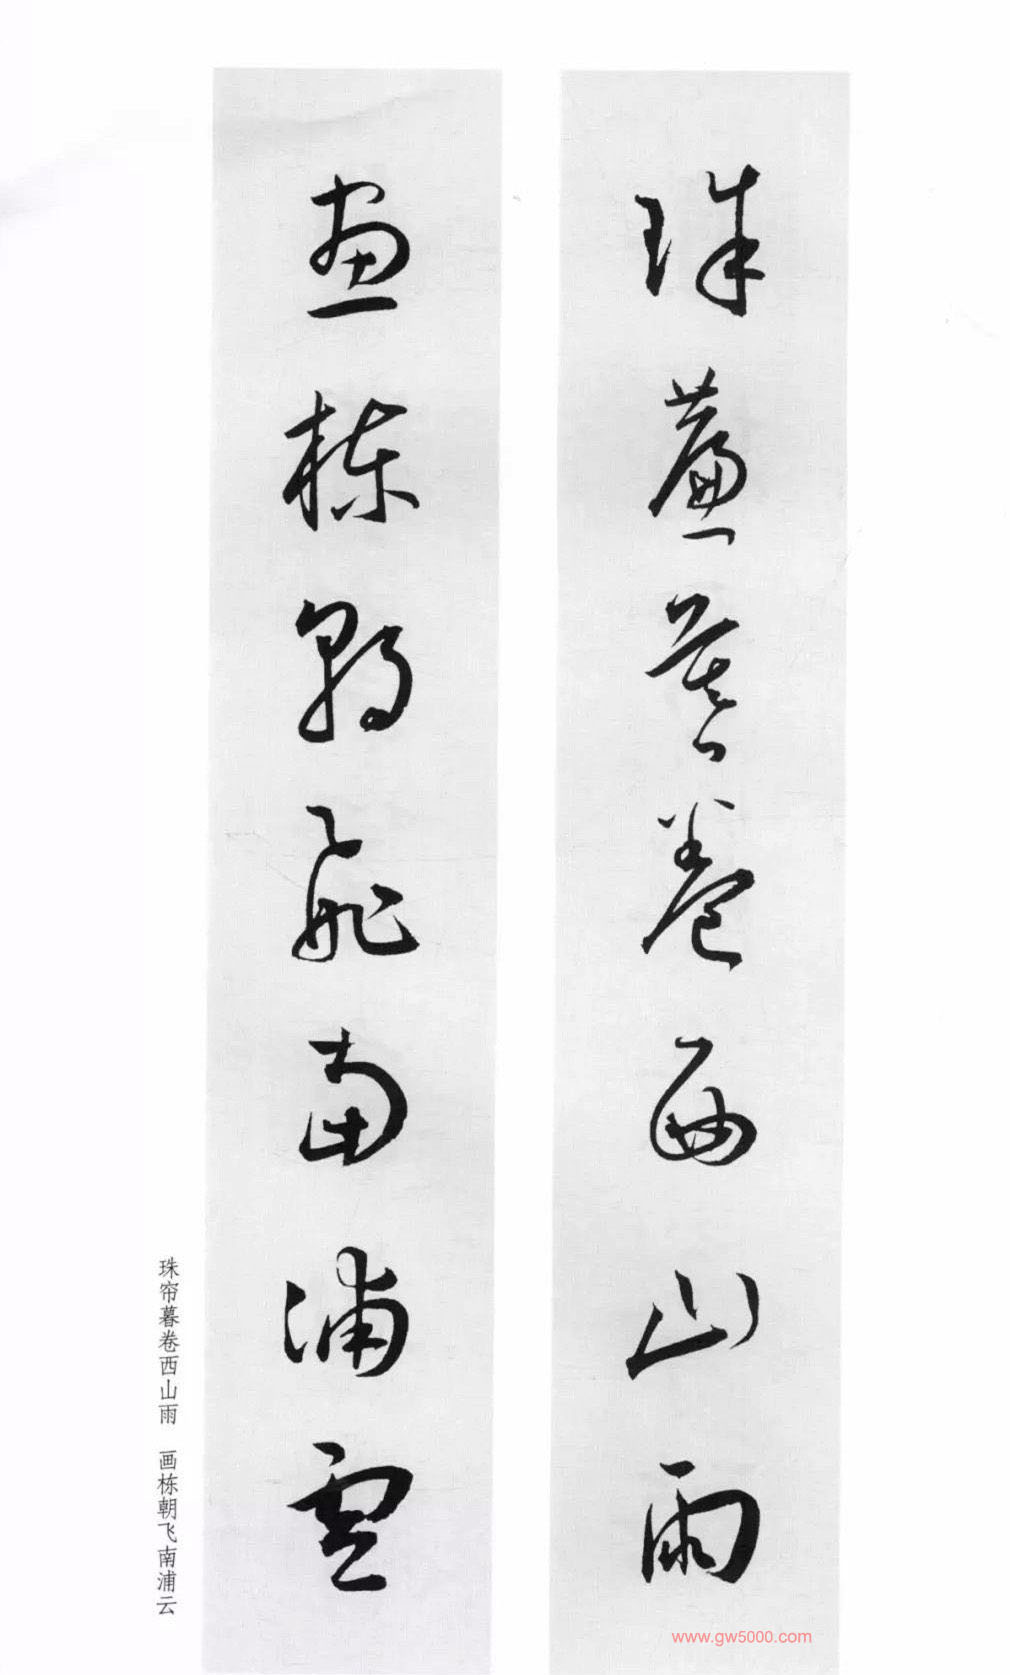 珠簾暮卷西山雨
畫棟朝飛南浦雲
珠帘暮卷西山雨 画栋朝飞南浦云
www.gw5000.com